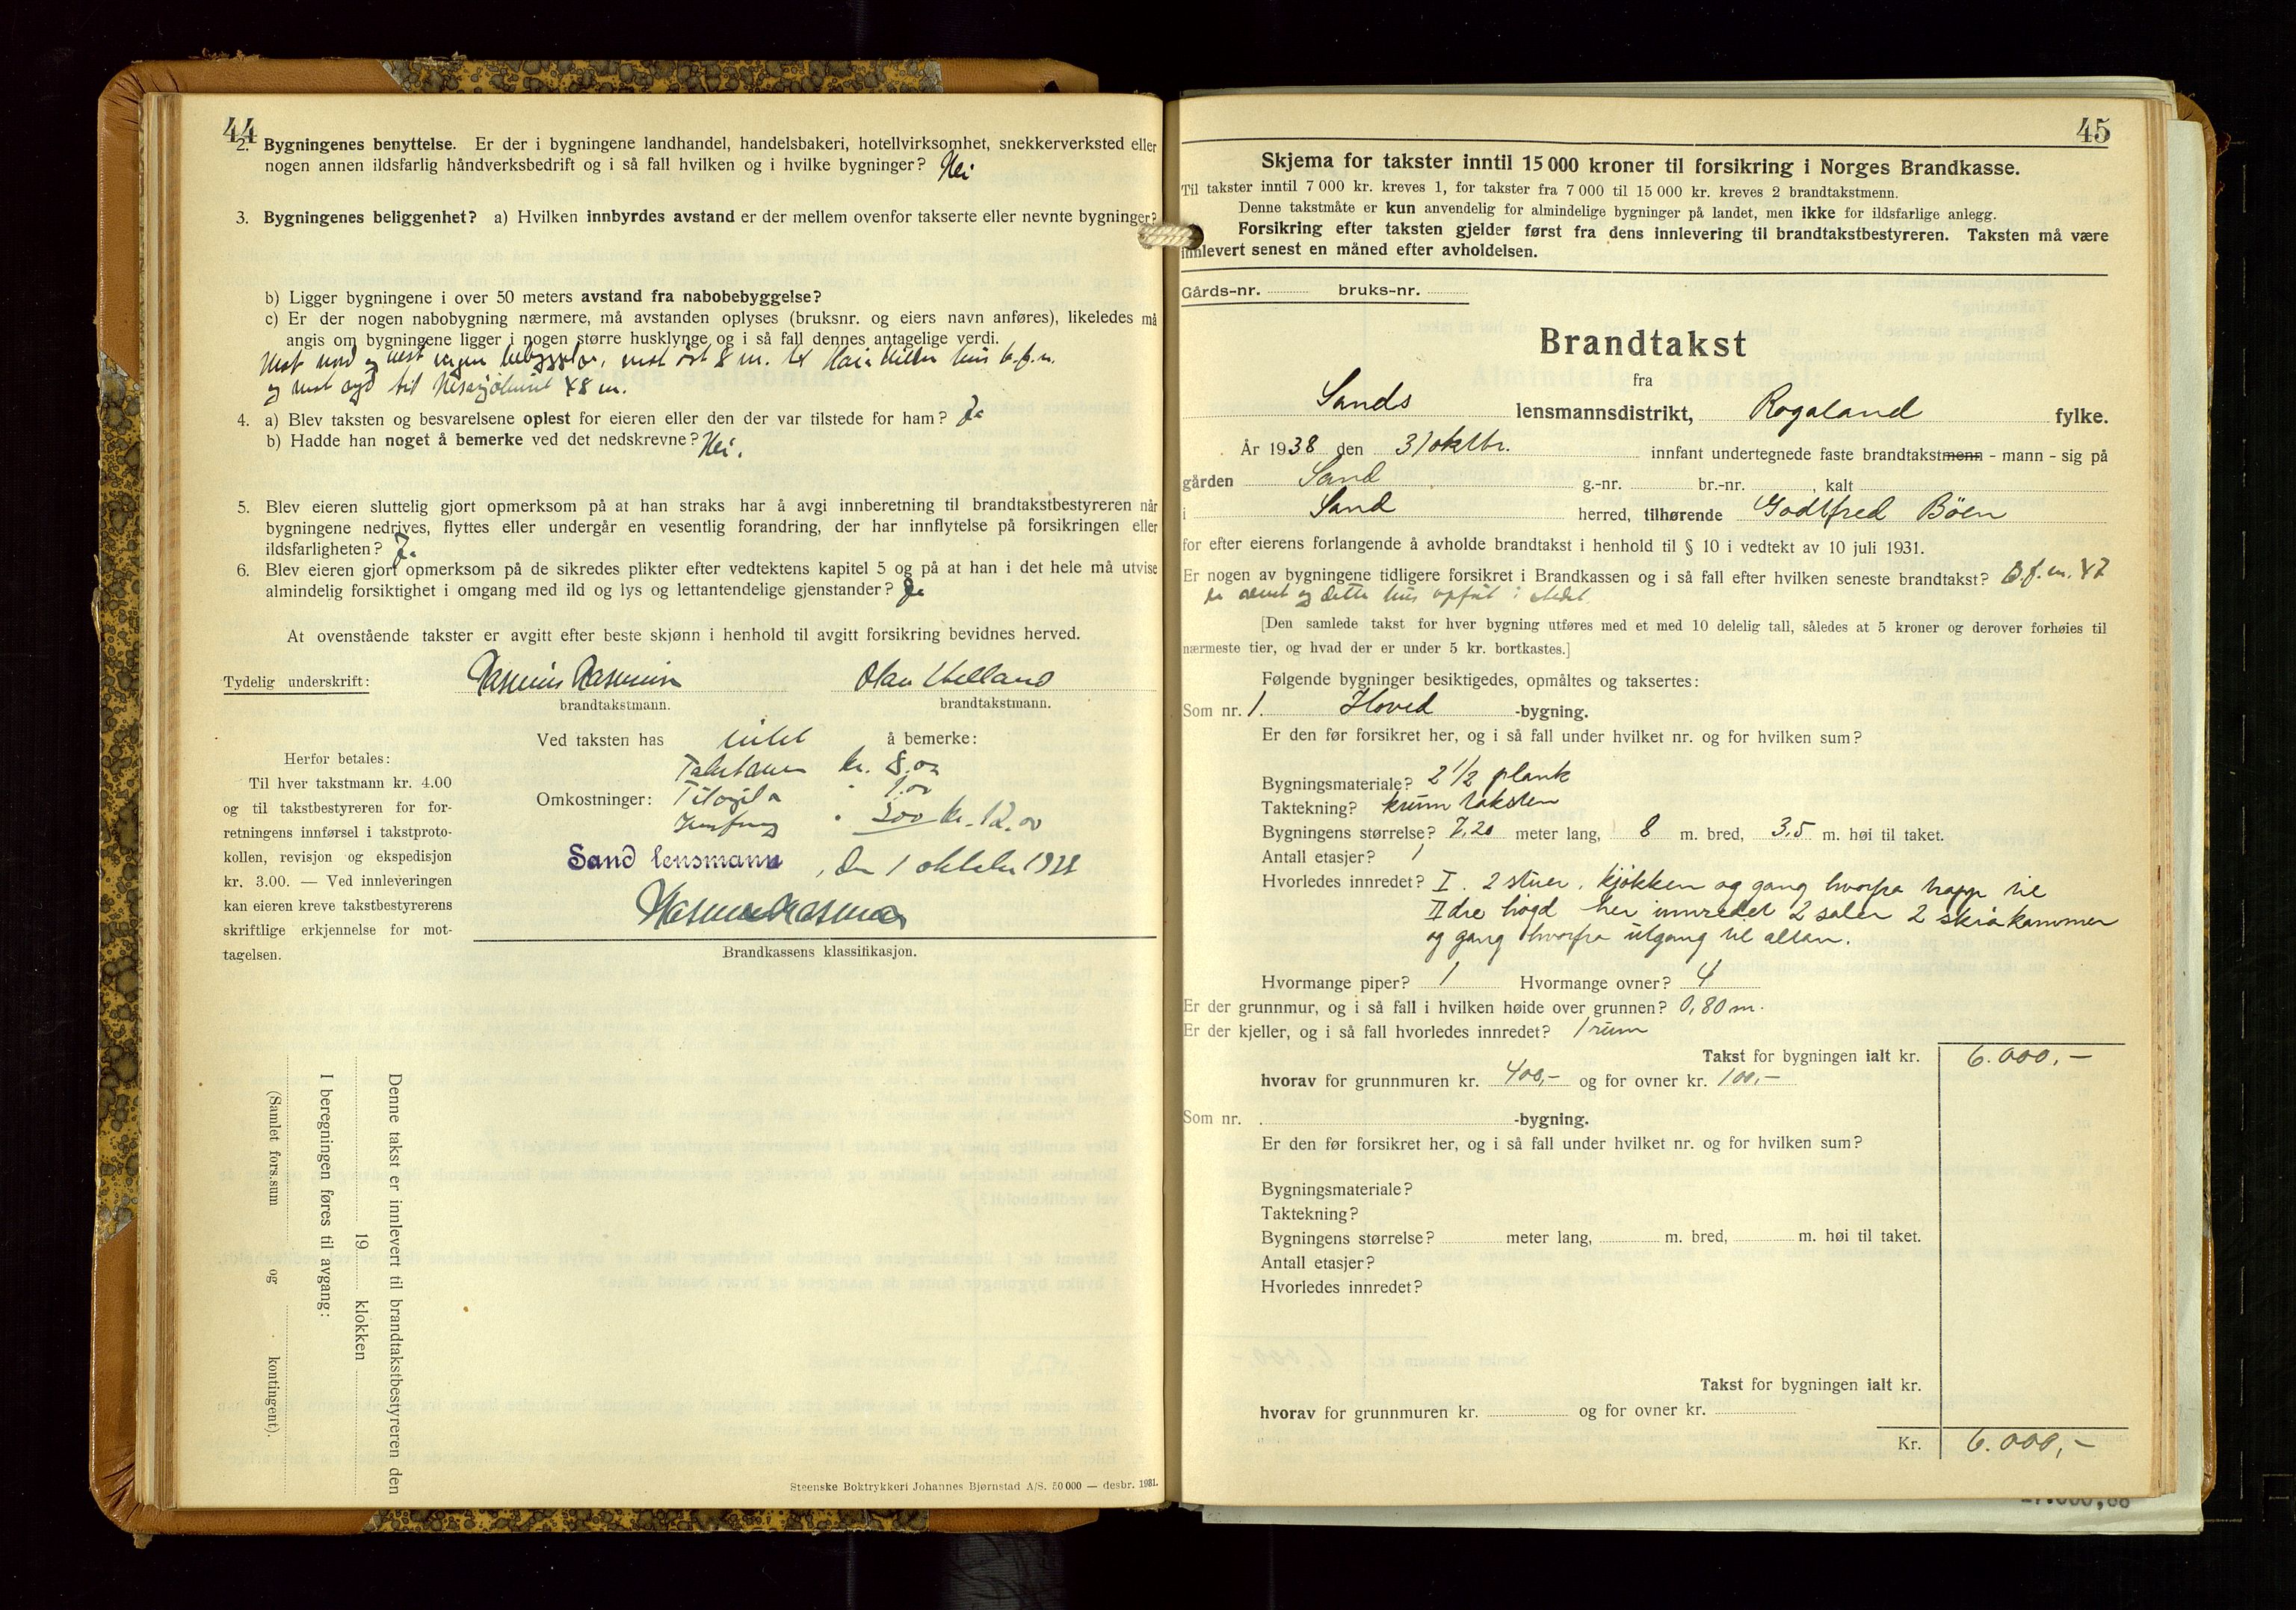 44
2. Bygningenes benyttelse. Er der i bygningene landhandel, handelsbakeri, hotellvirksomhet, snekkerverksted eller
nogen annen ildsfarlig håndverksbedrift og i så fall hvilken og i hvilke bygninger? Nei
3. Bygningenes beliggenhet? a) Hvilken innbyrdes avstand er der mellem ovenfor takserte eller nevnte bygninger?
b) Ligger bygningene i over 50 meters avstand fra nabobebyggelse?
c) Er der nogen nabobygning nærmere, må avstanden oplyses (bruksnr. og eiers navn anføres), likeledes må
angis om bygningene ligger i nogen større husklynge og i så fall dennes antagelige verdi.
Mot nord og vest ingen bebyggelse, mot øst 8 m. til hus b.f.n.
og mot syd til 48 m.
4. a) Blev taksten og besvarelsene oplest for eieren eller den der var tilstede for ham? Ja
b) Hadde han noget å bemerke ved det nedskrevne? Nei.
5. Blev eieren sluttelig gjort opmerksom på at han straks har å avgi innberetning til brandtakstbestyreren når
bygningene nedrives, flyttes eller undergår en vesentlig forandring, der har innflytelse på forsikringen eller
ildsfarligheten? Ja
6. Blev eieren gjort opmerksom på de sikredes plikter efter vedtektens kapitel 5 og på at han i det hele må utvise
almindelig forsiktighet i omgang med ild og lys og lettantendelige gjenstander? Ja
At ovenstående takster er avgitt efter beste skjønn i henhold til avgitt forsikring bevidnes herved.
Tydelig underskrift: Rasmus Rasmussen Olav Helland
brandtakstmann. brandtakstmann.
Ved taksten has intet å bemerke:
Takstmenn kr. 8.00
Omkostninger: 1.00
3.00 kr. 12.00
Sand lensmann, den 1 oktober 1938
Rasmus Rasmussen
Brandkassens klassifikasjon.
Herfor betales:
Til hver takstmann kr. 4.00
og til takstbestyreren for for-
retningens innførsel i takstproto-
kollen, revisjon og ekspedisjon
kr. 3.00. — Ved innleveringen
kan eieren kreve takstbestyrerens
skriftlige erkjennelse for mot-
tagelsen.
Denne takst er innlevert til brandtakstbestyreren den
19 klokken
I beregningen føres til avgang:
(Samlet fors.sum og kontingent).
Steenske Boktrykkeri Johannes Bjørnstad A/S. 50 000 — desbr. 1931.
45
Skjema for takster inntil 15 000 kroner til forsikring i Norges Brandkasse.
Til takster inntil 7 000 kr. kreves 1, for takster fra 7 000 til 15 000 kr. kreves 2 brandtakstmenn.
Denne takstmåte er kun anvendelig for almindelige bygninger på landet, men ikke for ildsfarlige anlegg.
Forsikring efter taksten gjelder først fra dens innlevering til brandtakstbestyreren. Taksten må være
innlevert senest en måned efter avholdelsen.
Gårds-nr. bruks-nr.
Brandtakst
fra
Sands lensmannsdistrikt, Rogaland fylke.
År 1938 den 31 oktbr. innfant undertegnede faste brandtakstmenn - mann - sig på
gården Sand g.-nr. br.-nr. , kalt
i Sand herred, tilhørende Godtfred Böen
for efter eierens forlangende å avholde brandtakst i henhold til § 10 i vedtekt av 10 juli 1931.
Er nogen av bygningene tidligere forsikret i Brandkassen og i så fall efter hvilken seneste brandtakst? B.f.n. 47
er revet og dette hus opført i stedet
[Den samlede takst for hver bygning utføres med et med 10 delelig tall, således at 5 kroner og derover forhøies til
nærmeste tier, og hvad der er under 5 kr. bortkastes.]
Følgende bygninger besiktigedes, opmåltes og taksertes:
Som nr. 1. Hoved -bygning.
Er den før forsikret her, og i så fall under hvilket nr. og for hvilken sum?
Bygningsmateriale? 2 1/2 plank
Taktekning? krum taksten
Bygningens størrelse? 7,20 meter lang, 8 m. bred, 3,5 m. høi til taket.
Antall etasjer? 1
Hvorledes innredet? I. 2 stuer, kjøkken og gang hvorfra trapp til
II dre høgd her innredet 2 saler 2 skråkammer
og gang hvorfra utgang til altan.
Hvormange piper? 1 Hvormange ovner? 4
Er der grunnmur, og i så fall i hvilken høide over grunnen? 0,80 m.
Er der kjeller, og i så fall hvorledes innredet? 1 rum
Takst for bygningen ialt kr. 6.000,-
hvorav for grunnmuren kr. 400,- og for ovner kr. 100,-
Som nr. . -bygning.
Er den før forsikret her, og i så fall under hvilket nr. og for hvilken sum?
Bygningsmateriale?
Taktekning?
Bygningens størrelse? meter lang, m. bred, m. høi til taket.
Antall etasjer?
Hvorledes innredet?
Takst for bygningen ialt kr.
hvorav for grunnmuren kr. og for ovner kr.
Kr. 6.000,-